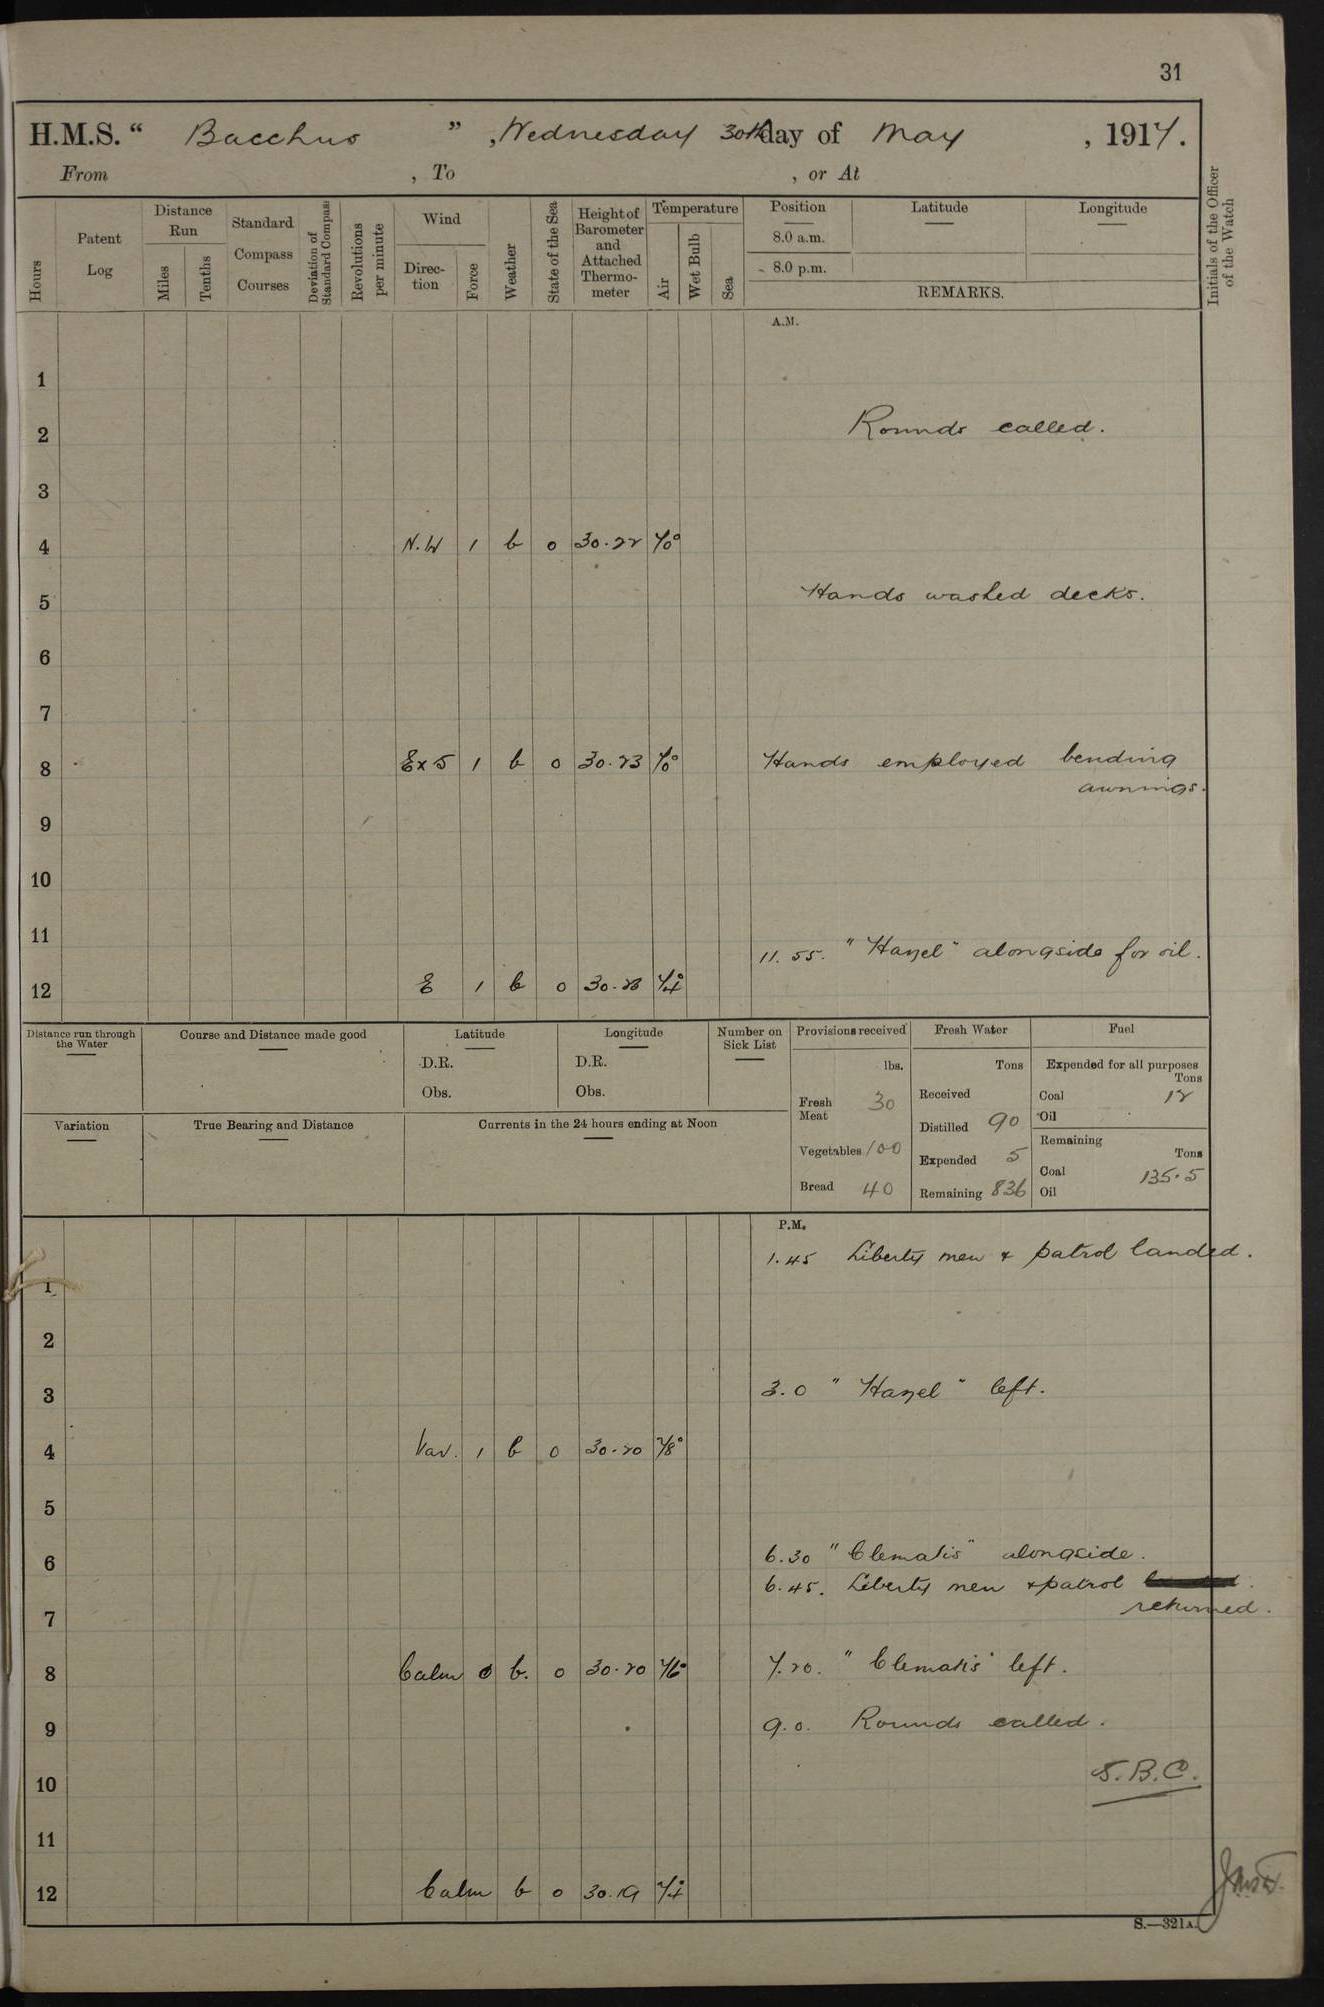 31
H.M.S. “ Bacchus ” , Wednesday 30th day of May , 1917.
From , To , or At
Hours
Patent Log
Distance Run
Miles
Tenths
Standard Compass Courses
Deviation of Standard Compass
Revolutions per minute
Wind
Direc-tion
Force
Weather
State of the Sea
Height of Barometer and Attached Thermo-meter
Temperature
Air
Wet Bulb
Sea
Position Latitude Longitude
8.0 a.m.
8.0 p.m.
REMARKS.
Initials of the Officer of the Watch
A.M.
1
2 Rounds called.
3
4 N.W 1 b 0 30.22 70°
5 Hands washed decks.
6
7
8 ExS 1 b 0 30.23 70° Hands employed bending
awnings.
9
10
11 11.55. "Hazel" alongside for oil.
12 E 1 b 0 30.23 74°
Distance run through the Water
Course and Distance made good
Latitude
D.R.
Obs.
Longitude
D.R.
Obs.
Number on Sick List
Provisions received
lbs.
Fresh Meat 30
Vegetables 100
Bread 40
Fresh Water
Tons
Received
Distilled 90
Expended 5
Remaining 836
Fuel
Expended for all purposes
Tons
Coal 12
Oil
Remaining
Tons
Coal 135.5
Oil
Variation
True Bearing and Distance
Currents in the 24 hours ending at Noon
P.M.
1.45 Liberty men & patrol landed.
1
2
3 3.0 "Hazel" left.
4 Var. 1 b 0 30.20 78°
5
6 6.30 "Clematis" alongside.
6.45. Liberty men & patrol
returned.
7
8 Calm 0 b. 0 30.20 76° 7.20. "Clematis" left.
9 9.0. Rounds called.
10 S.B.C.
11
12 Calm b 0 30.19 74°
S.—321A.